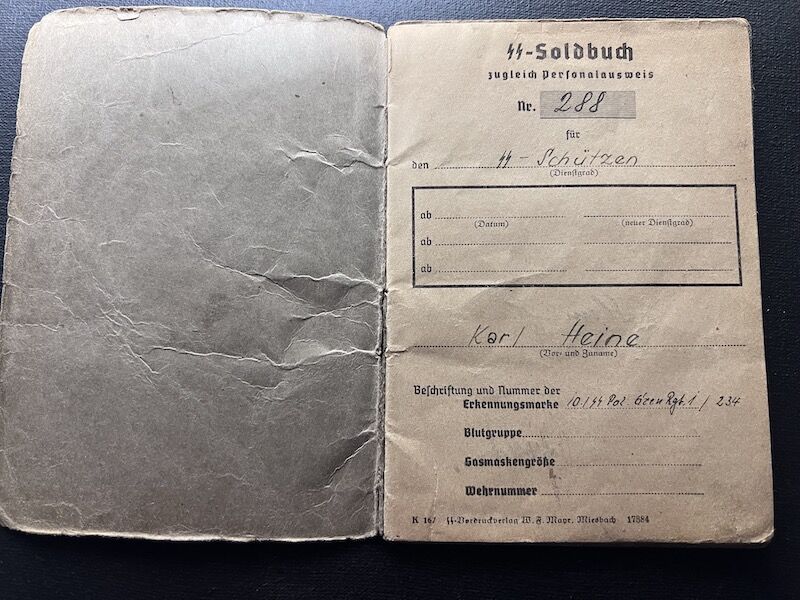 ᛋᛋ-Soldbuch
zugleich Personalausweis
Nr. 288
für
den ᛋᛋ-Schützen
(Dienstgrad)
ab
(Datum) (neuer Dienstgrad)
ab
ab
Karl Heine
(Vor- und Zuname)
Beschriftung und Nummer der
Erkennungsmarke 10./ᛋᛋ Pol. Gren Rgt. 1 / 234
Blutgruppe
Gasmaskengröße
Wehrnummer
K 167 ᛋᛋ-Vordruckverlag W. F. Mayr, Miesbach 17884